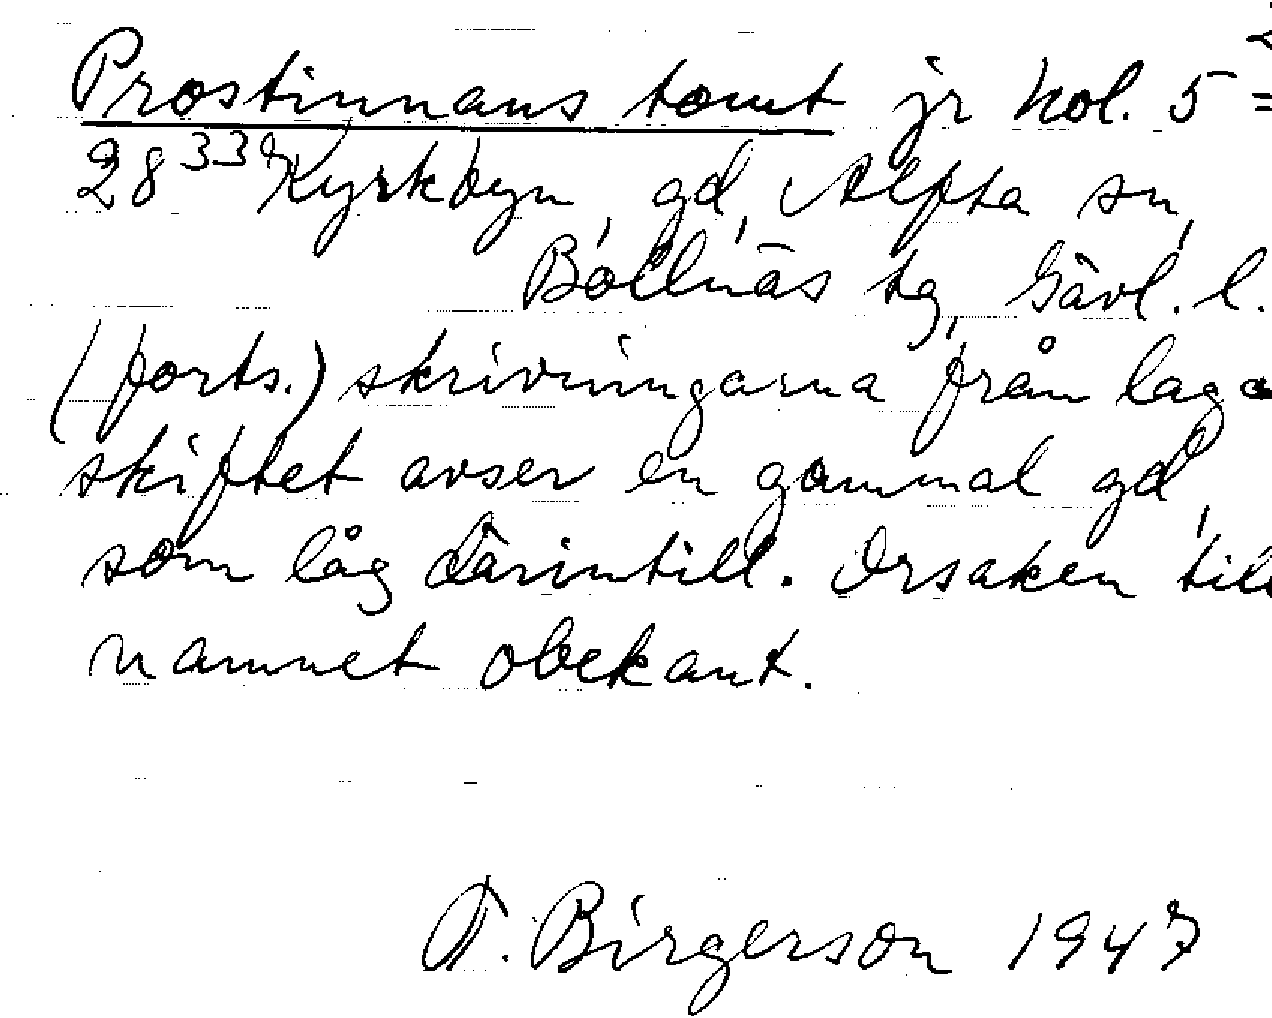 Prostinnans tomt jr kol. 5 =
28³³ Kyrkbyn, gd, Alfta sn,
Bollnäs tg, Gävl. l.
(forts.) skrivningarna från laga
skiftet avser en gammal gd,
som låg därintill. Orsaken till
namnet obekant.
F. Birgerson 1947